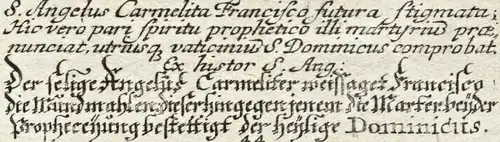 S. Angelus Carmelita Francisco futura stigmata:
Hic vero pari spiritu prophetico illi martyrium præ-
nunciat, utriusq, vaticinium S. Dominicus comprobat.
Ex histor S. Ang:
Der selige Angelus Carmeliter weissaget Francisco
die Wundmahlen dieser hingegen jenem die Marter beÿder
Propheceÿung bestettigt der heÿlige Dominicus.